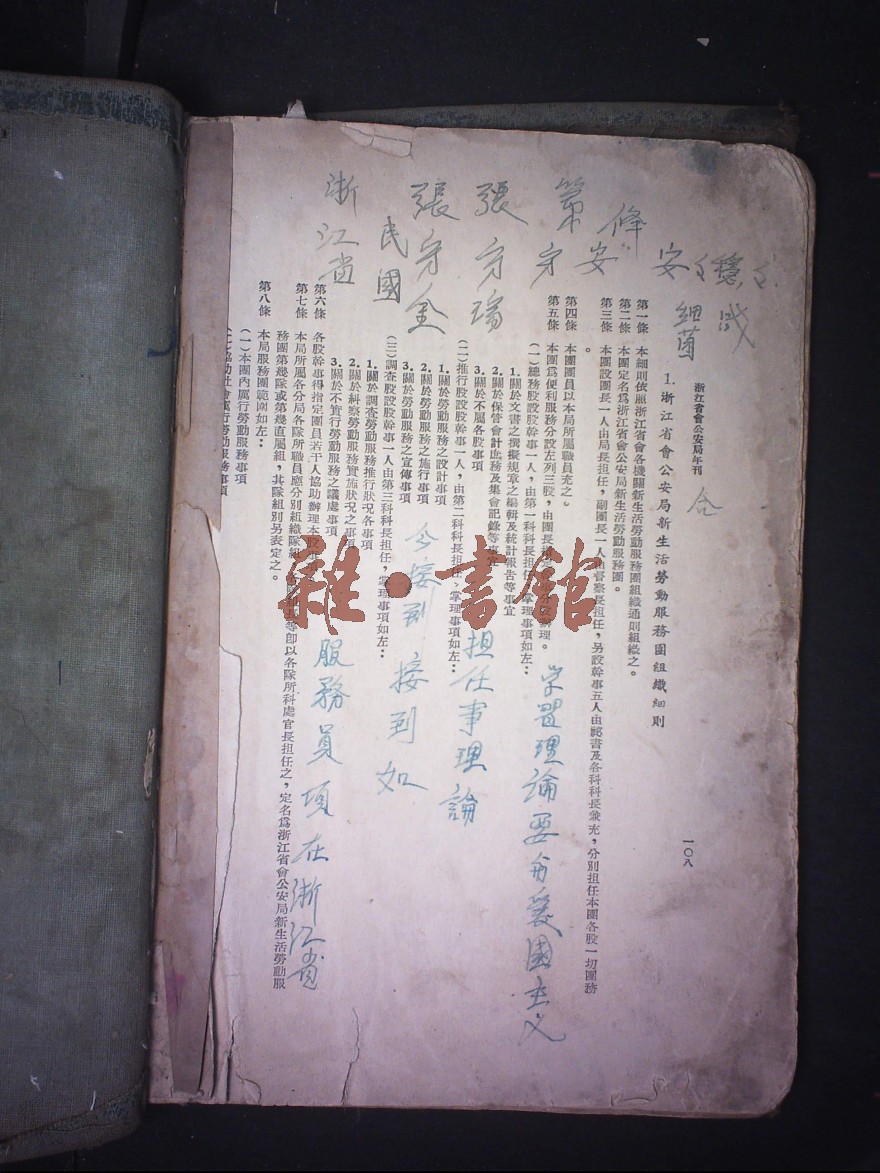 浙江省會公安局年刊
一〇八
1. 浙江省會公安局新生活勞動服務團組織細則
第一條 本細則依照浙江省會各機關新生活勞動服務團組織通則組織之。
第二條 本團定名爲浙江省會公安局新生活勞動服務團。
第三條 本團設團長一人由局長担任，副團長一人由督察長担任，另設幹事五人由秘書及各科科長兼充，分別担任本團各股一切團務
。
第四條 本團團員以本局所屬職員充之。
第五條 本團爲便利服務分設左列三股，由團長 辦理。
（一）總務股設股幹事一人，由第一科科長担任 掌理事項如左：
1. 關於文書之撰擬規章之編輯及統計報告等事宜
2. 關於保管會計庶務及集會記錄等事宜
3. 關於不屬各股事項
（二）推行股設股幹事一人，由第二科科長担任、掌理事項如左：
1. 關於勞動服務之設計事項
2. 關於勞動服務之施行事項
3. 關於勞動服務之宣傳事項
（三）調查股設股幹事一人由第三科科長担任，掌理事項如左：
1. 關於調查勞動服務推行狀況各事項
2. 關於糾察勞動服務實施狀況之事項
3. 關於不實行勞動服務之議處事項
第六條 各股幹事得指定團員若干人協助辦理本股事
第七條 本局所屬各分局各隊所職員應分別組織隊組， 等即以各隊所科處官長担任之，定名爲浙江省會公安局新生活勞動服
務團第幾隊或第幾直屬組，其隊組別另表定之。
第八條 本局服務團範圍如左：
（一）本團內厲行勞動服務事項
（二）協助社會厲行勞動服務事項
安
穩
細菌
條安
第
張守瑞
張守金
民國
浙江省
学習理論要
愛國主义
担任事理論
今接到
接到如
服務員項在浙江省
雜·書館